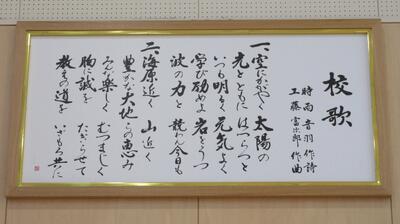 校歌
時雨音羽 作詩
工藤富次郎 作曲
一、空にかがやく 太陽の
光とともに はつらつと
いつも明るく 元気よく
学び励めよ 岩をうつ
波の力と 競わん今日も
二、海原近く 山近く
豊かな大地 らの恵み
みんな楽しく むつまじく
胸に誠を たぎらせて
教えの道を いざもろ共に